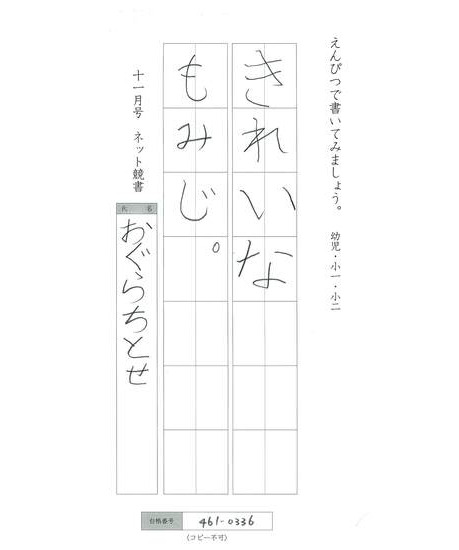 えんぴつで書いてみましょう。 幼児・小一・小二
きれいな
もみじ。
十一月号 ネット競書
氏名
おぐらちとせ
台帳番号 461-0336
(コピー不可)